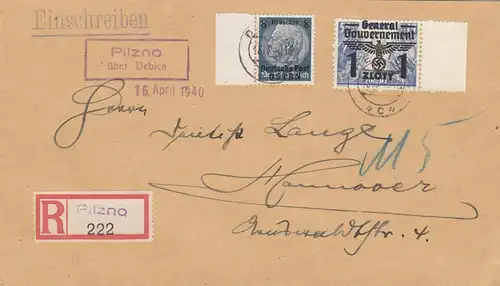 Einschreiben
Pilzno
über Debica
16. April 1940
8 Groschen 8
Deutsche Post
General
Gouvernement
1 1
ZŁOTY
Herrn
Lange
M5
Hannover
str. 4.
R Pilzno
222